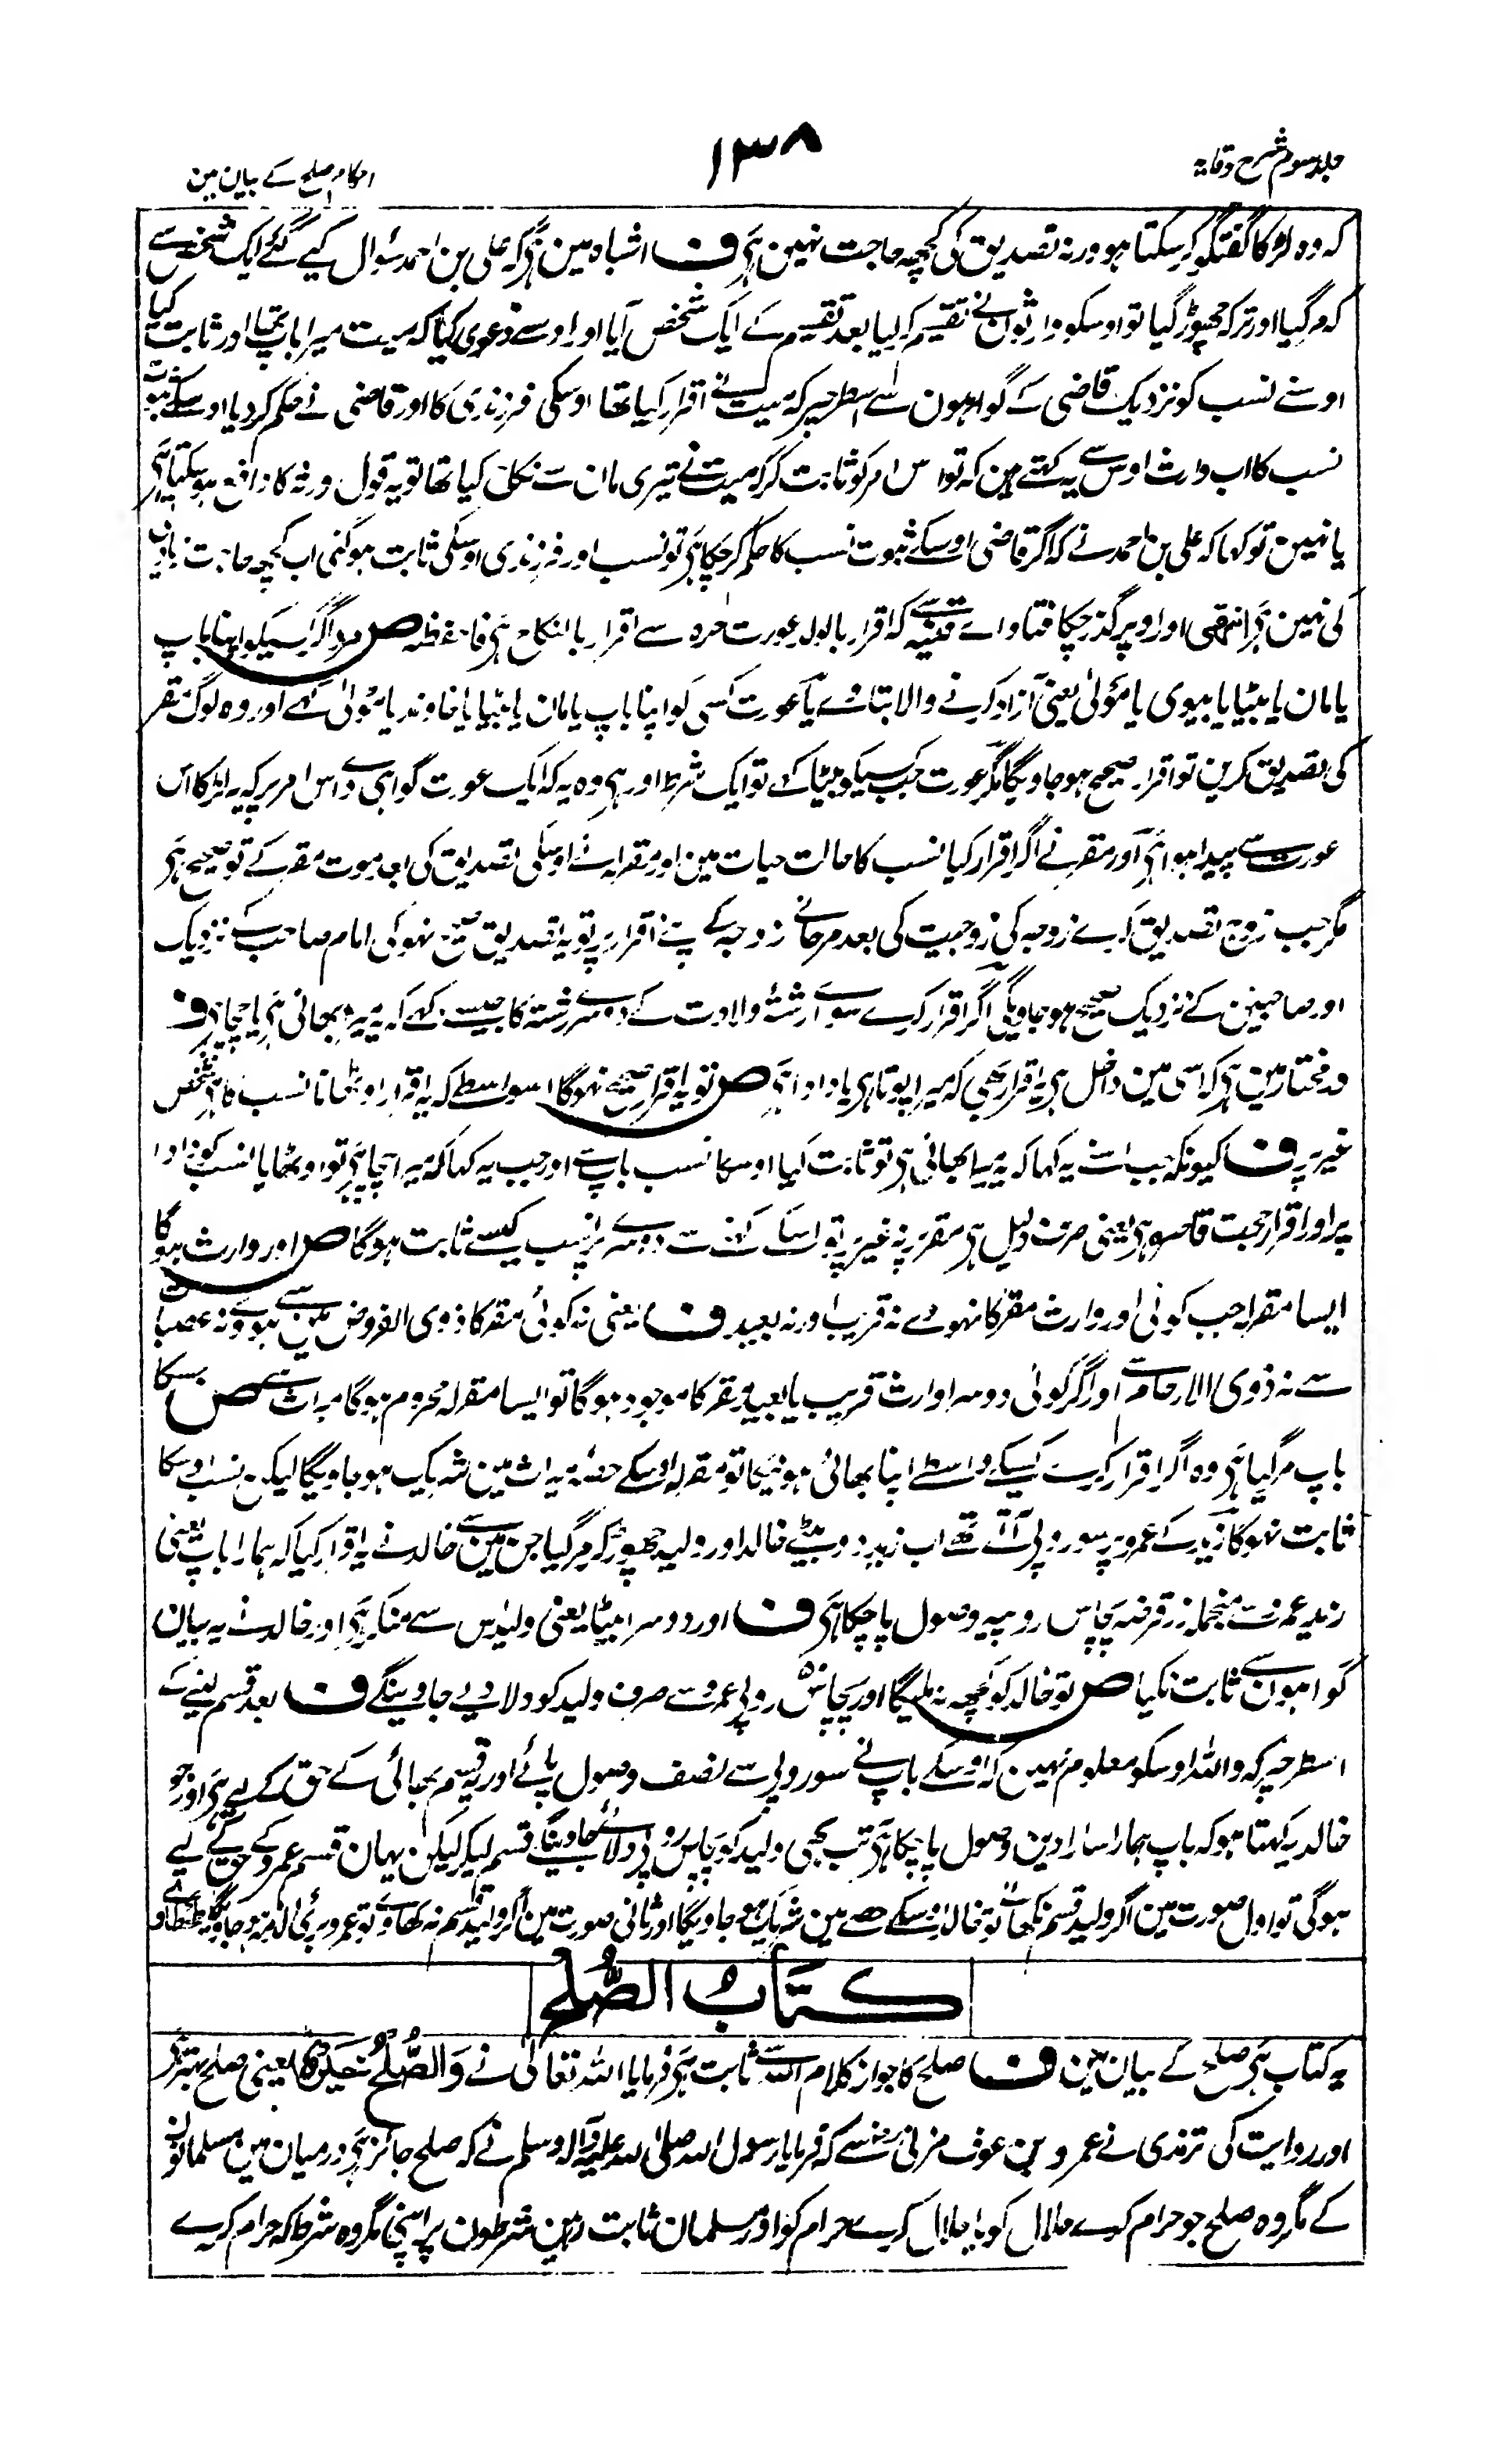 جلد سوم شرح وقایہ
۱۳۸
احکام صلح کے بیان مین
کہ وہ لڑکا گفتگو کر سکتا ہو ورنہ تصدیق کی کچھہ حاجت نہین ہی ف اشباہ مین ہی کہ علی بن احمد سئوال کیے گئے ایک شخص سے
کہ مر گیا اور ترکہ چھوڑ گیا تو اوسکو وارثوں نے تقسیم کر لیا بعد تقسیم کے ایک شخص آیا اور اوسنے دعوی کیا کہ میت میرا باپ تھا اور ثابت کیا
اوسنے نسب کو نزدیک قاضی کے گواہون سے اسطرحپر کہ میت نے اقرار کیا تھا اوسکی فرزندی کا اور قاضی نے حکم کر دیا اوسکے ثبوت
نسب کا اب وارث اوس سے یہ کہتے ہین کہ تو اس امر کو ثابت کر کہ میت نے تیری مان سے نکاح کیا تھا تو یہ قول ورثہ کا دافع ہو سکتا ہی
یا نہین تو کہا کہ علی بن احمد نے کہ اگر قاضی اوسکے ثبوت نسب کا حکم کر چکا ہی تو نسب اور فرزندی اوسکی ثابت ہو گئی اب کچھہ حاجت زیادتی
کی نہین ہی انتھی اور اوپر گذر چکا فتاوے قنیہ سے کہ اقرار بالولد عورت حرہ سے اقرار بالنکاح ہی فاحفظہ ص مرد اگر کسیکو اپنا باپ
یا مان یا بیٹا یا بیوی یا مولیٰ یعنی آزاد کرنے والا بتاوے یا عورت کسی کو اپنا باپ یا مان یا بیٹا یا خاوند یا مولیٰ کہے اور وہ لوگ مقر
کی تصدیق کرین تو اقرار صحیح ہو جاویگا مگر عورت جب کسیکو بیٹا کہے تو ایک شرط اور ہی وہ یہ کہ ایک عورت گواہی دے اس امر پر کہ یہ لڑکا اس
عورت سے پیدا ہوا ہی اور مقر نے اگر اقرار کیا نسب کا حالت حیات مین اور مقرلہ نے اوسکی تصدیق کی بعد موت مقر کے تو صحیح ہی
مگر جب زوج تصدیق کرے زوجہ کی زوجیت کی بعد مرجانے زوجہ کے اپنے اقرار پر تو یہ تصدیق صحیح نہوگی امام صاحب کے نزدیک
اور صاحبین کے نزدیک صحیح ہو جاویگی اگر اقرار کرے سوائے رشتۂ ولادت کے دوسرے رشتہ کا جیسے کہے کہ یہ میرا بھائی ہی یا چچا ہی ف
در مختار مین ہی کہ اسی مین داخل ہی یہ اقرار بھی کہ میرا پوتا ہی یا دادا ہی ص تو یہ اقرار صحیح نہوگا اسواسطے کہ یہ اقرار اوٹھانا نسب کا ہی شخص
غیر پر ف کیونکہ جب اسنے یہ کہا کہ یہ میرا بھائی ہی تو ثابت کیا اوسکا نسب باپ سے اور جب یہ کہا کہ یہ میرا چچا ہی تو اوٹھایا نسب کو دادا
پر اور اقرار حجت قاصرہ ہی یعنی صرف دلیل ہی مقر پر نہ غیر پر تو اسکے کہنے سے دوسرے پر نسب کیسے ثابت ہوگا ص اور وارث ہوگا
ایسا مقرلہ جب کوئی اور وارث مقر کا نہووے نہ قریب اور نہ بعید ف یعنی نہ کوئی مقر کا ذوی الفروض مین سے ہووے نہ عصبات
سے نہ ذوی الارحام سے اور اگر کوئی دوسرا وارث قریب یا بعید مقر کا موجود ہوگا تو ایسا مقرلہ محروم ہوگا میراث سے ص جسکا
باپ مر گیا ہی وہ اگر اقرار کرے کسیکے واسطے اپنا بھائی ہونیکا تو مقرلہ اوسکے حصۂ میراث مین شریک ہو جاویگا لیکن نسب اوسکا
ثابت نہوگا زید کے عمرو پر سو روپی آتے تھے اب زید دو بیٹے خالد اور ولید چھوڑ کر مر گیا جن مین سے خالد نے یہ اقرار کیا کہ ہمارا باپ یعنی
زید عمرو سے منجملہ زر قرضہ پچاس روپیہ وصول پا چکا ہی ف اور دوسرا بیٹا یعنی ولید اس سے منکر ہی اور خالد نے یہ بیان
گواہون سے ثابت نکیا ص تو خالد کو کچھہ نہ ملیگا اور پچاس روپی عمرو سے صرف ولید کو دلا دیے جاوینگے ف بعد قسم لینے کے
اسطرحپر کہ واللہ اوسکو معلوم نہین کہ اوسکے باپ نے سو روپی سے نصف وصول پائے اور یہ قسم بھائی کے حق کے لیے ہی اور جو
خالد یہ کہتا ہو کہ باپ ہمارا سارا دین وصول پا چکا ہی تب بھی ولید کو پچاس روپی دلائے جاوینگے قسم لیکر لیکن یہان قسم عمرو کے حق کے لیے
ہوگی تو اول صورت مین اگر ولید قسم نکھاے تو خالد اوسکے حصے مین شریک ہو جاویگا اور ثانی صورت مین اگر ولید قسم نہ کھاوے تو عمرو بری الذمہ ہو جاویگا طحطاوی
کتاب الصُّلح
یہ کتاب ہی صلح کے بیان مین ف صلح کا جواز کلام اللہ سے ثابت ہی فرمایا اللہ تعالیٰ نے وَالصُّلْحُ خَیْرٌ یعنی صلح بہتر ہی
اور روایت کی ترمذی نے عمرو بن عوف مزنی رضہ سے کہ فرمایا رسول اللہ صلی اللہ علیہ وآلہ وسلم نے کہ صلح جائز ہی درمیان مین مسلمانون
کے مگر وہ صلح جو حرام کرے حلال کو یا حلال کرے حرام کو اور مسلمان ثابت رہین شرطون پر اپنی مگر وہ شرط کہ حرام کرے